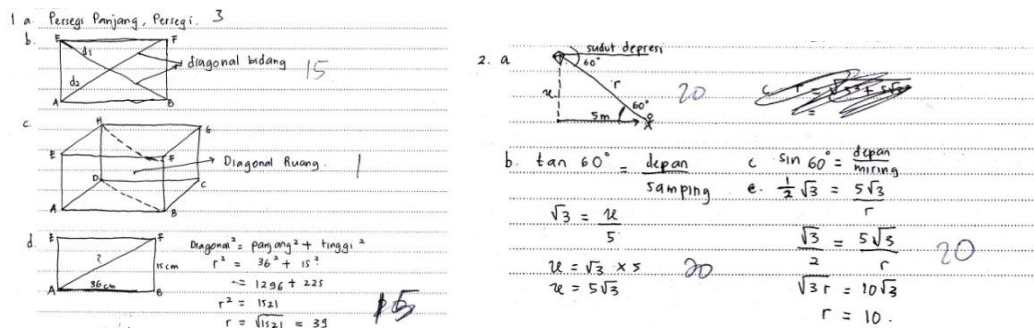 1 a. Persegi Panjang, Persegi. 3
b.
E F
d1
d2
A B
diagonal bidang 15
c.
H G
E F
Diagonal Ruang. 1
D C
A B
d.
E F
?
15 cm
A 36 cm B
Diagonal² = panjang² + tinggi²
r² = 36² + 15²
= 1296 + 225
r² = 1521
r = √1521 = 39
15
2. a
sudut depresi
60°
x r
5m 60°
20
b. tan 60° = depan / samping
√3 = x / 5
x = √3 × 5
x = 5√3
20
c sin 60° = depan / miring
½√3 = 5√3 / r
√3 / 2 = 5√3 / r
√3 r = 10√3
r = 10.
20